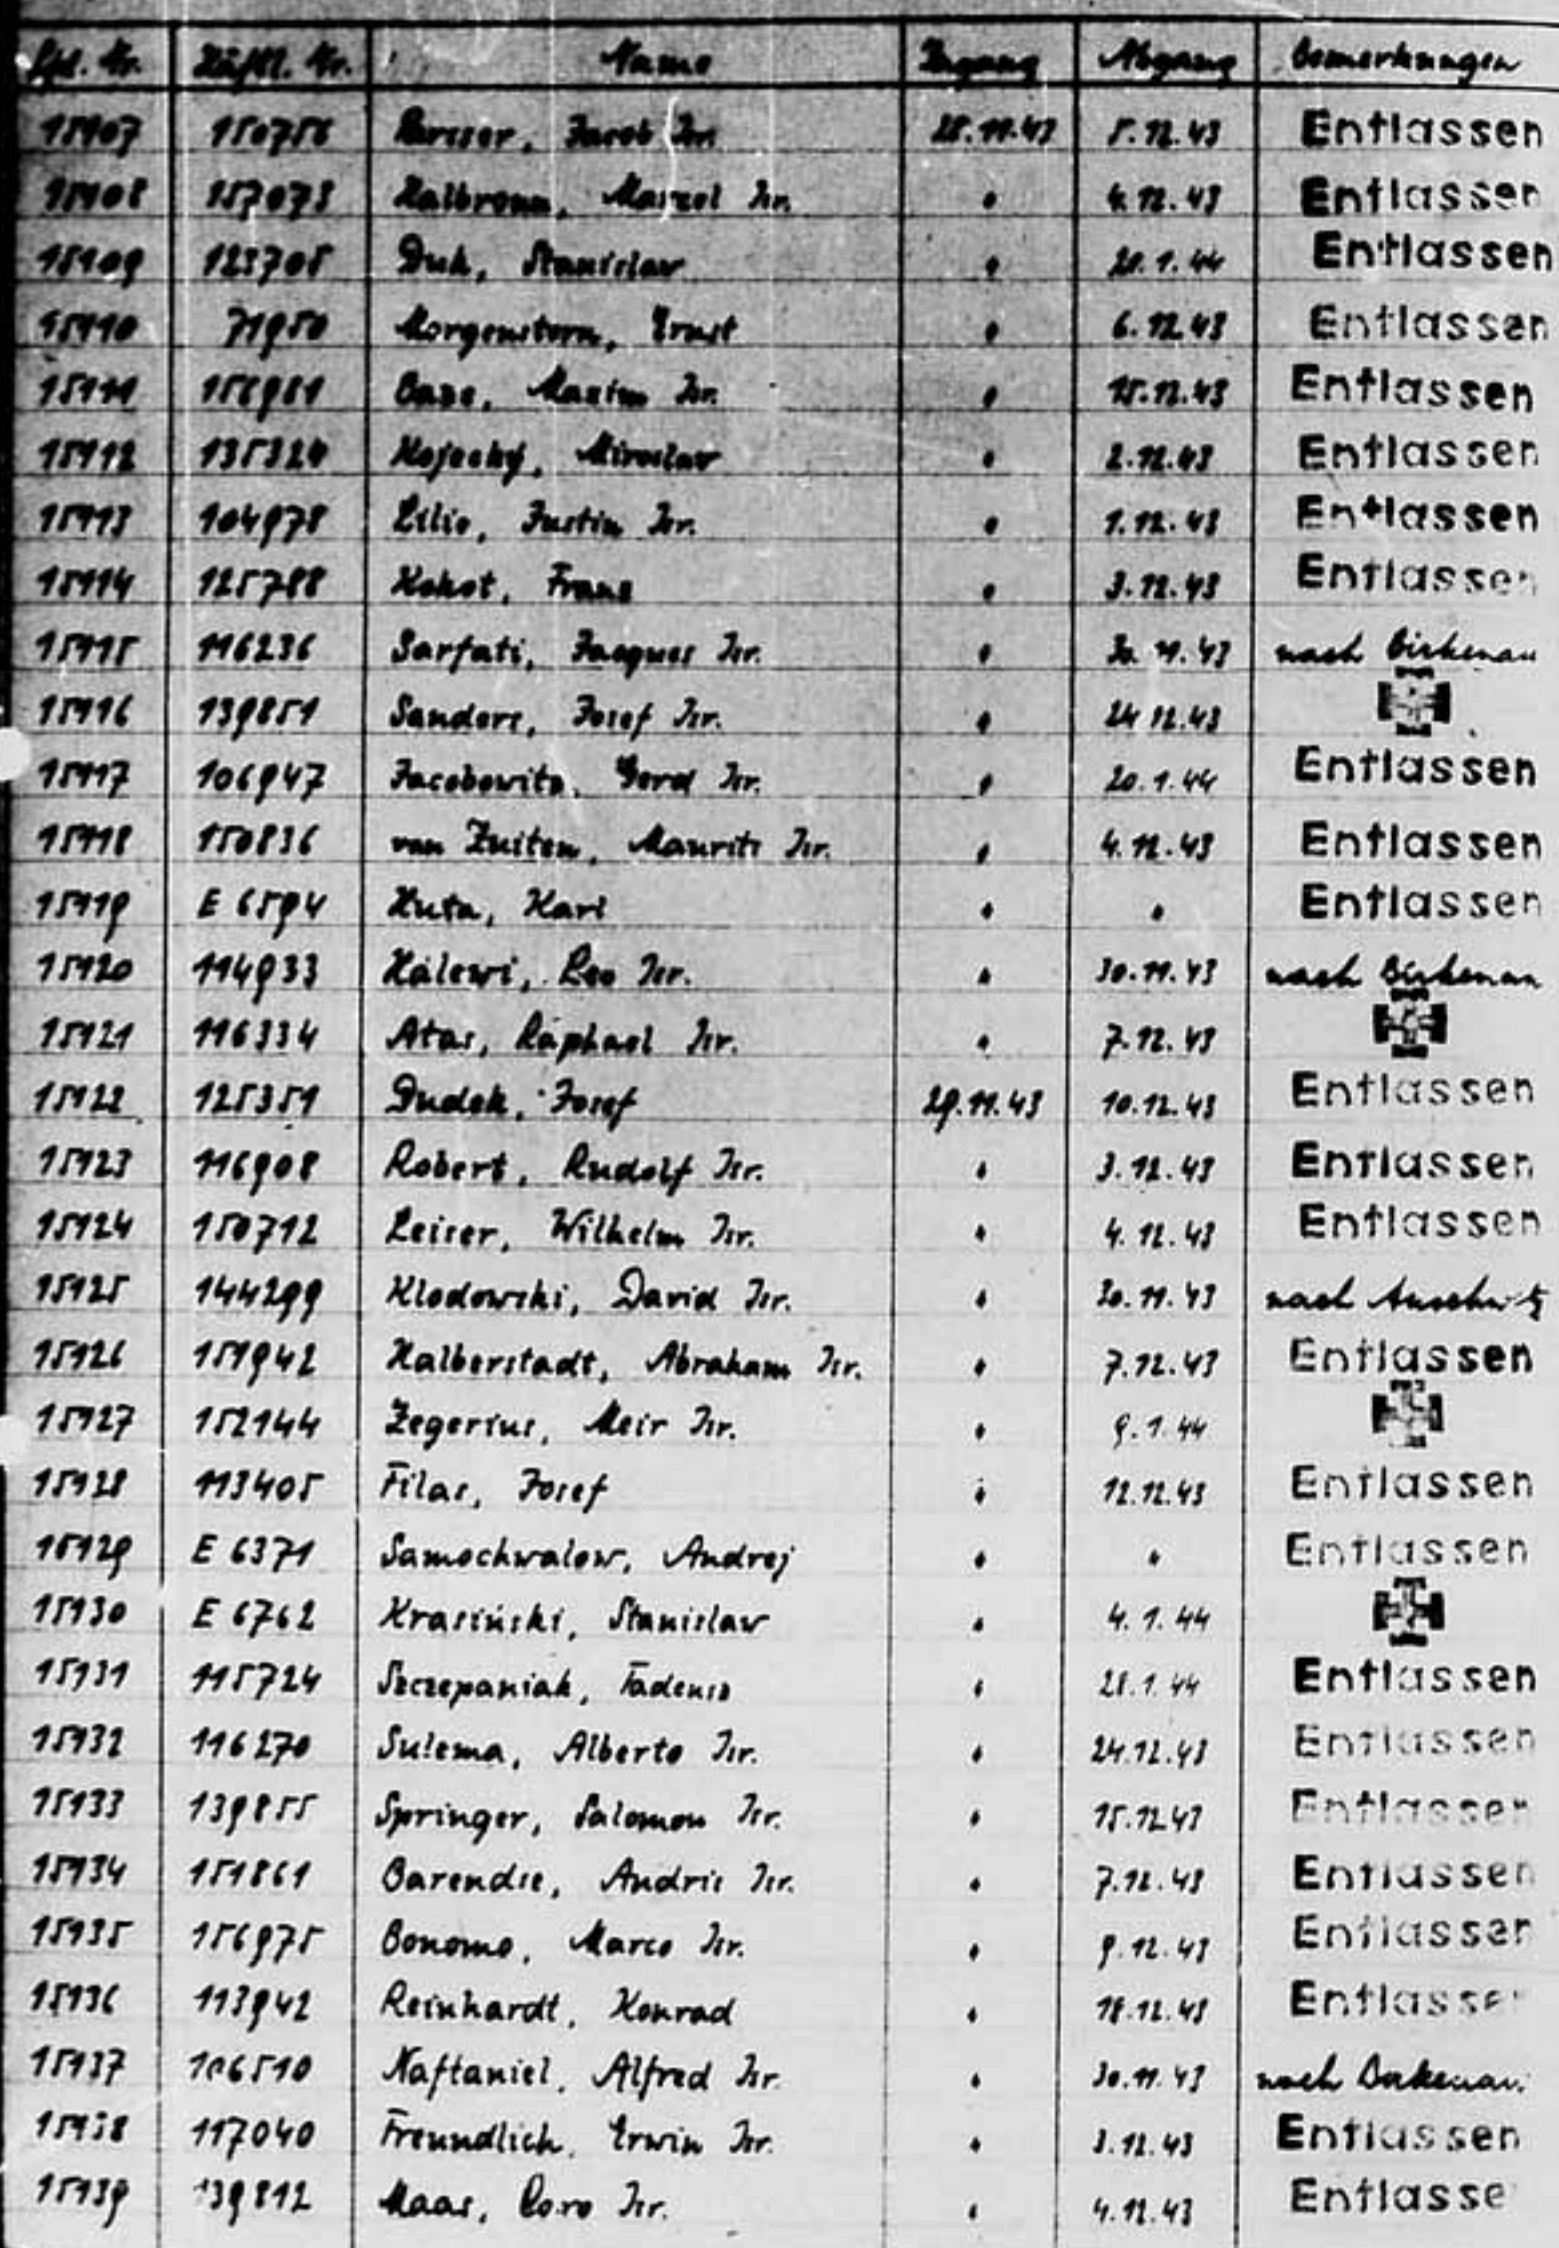 Lfd. Nr. Häftl. Nr. Name Zugang Abgang Bemerkungen
15107 150756 Jacob Isr. 28.11.43 5.12.43 Entlassen
15108 157073 Halbronn, Marzel Isr. " 4.12.43 Entlassen
15109 123705 Duk, Stanislaw " 20.1.44 Entlassen
15110 71950 Morgenstern, Ernst " 6.12.43 Entlassen
15111 156981 Maxim Isr. " 15.12.43 Entlassen
15112 135324 Miroslav " 2.12.43 Entlassen
15113 104978 Lilie, Justin Isr. " 1.12.43 Entlassen
15114 125788 Kokot, Franz " 3.12.43 Entlassen
15115 116236 Sarfati, Jacques Isr. " 30.11.43 nach Birkenau
15116 139851 Sanders, Josef Isr. " 24.12.43
15117 106947 Jacobowitz, Gerd Isr. " 20.1.44 Entlassen
15118 150836 van Zuiten, Maurits Isr. " 4.12.43 Entlassen
15119 E 6594 Huta, Karl " " Entlassen
15120 114933 Halewi, Leo Isr. " 30.11.43 nach Birkenau
15121 116334 Atas, Raphael Isr. " 7.12.43
15122 125351 Dudek, Josef 29.11.43 10.12.43 Entlassen
15123 116908 Robert, Rudolf Isr. " 3.12.43 Entlassen
15124 150712 Leiser, Wilhelm Isr. " 4.12.43 Entlassen
15125 144299 Klodowski, David Isr. " 30.11.43 nach Auschwitz
15126 151942 Halberstadt, Abraham Isr. " 7.12.43 Entlassen
15127 152144 Zegerius, Meir Isr. " 9.1.44
15128 113405 Filas, Josef " 12.12.43 Entlassen
15129 E 6371 Samochwalow, Andrej " " Entlassen
15130 E 6762 Krasiński, Stanislaw " 4.1.44
15131 115724 Szczepaniak, Tadeusz " 28.1.44 Entlassen
15132 116270 Sulema, Alberto Isr. " 24.12.43 Entlassen
15133 139855 Springer, Salomon Isr. " 15.12.43 Entlassen
15134 151861 Barendse, Andris Isr. " 7.12.43 Entlassen
15135 156975 Bonomo, Marco Isr. " 9.12.43 Entlassen
15136 113942 Reinhardt, Konrad " 18.12.43 Entlassen
15137 106510 Naftaniel, Alfred Isr. " 30.11.43 nach Birkenau
15138 117040 Freundlich, Erwin Isr. " 3.12.43 Entlassen
15139 139812 Maas, Isr. " 4.12.43 Entlasse